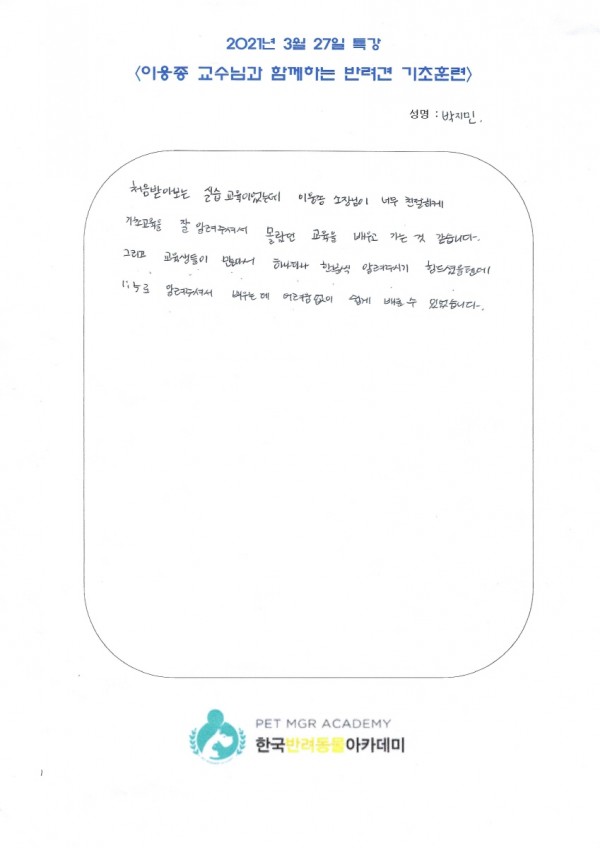 2021년 3월 27일 특강
<이웅종 교수님과 함께하는 반려견 기초훈련>
성명 : 박지민.
처음받아보는 실습 교육이었는데 이웅종 소장님이 너무 친절하게
기초교육을 잘 알려주셔서 몰랐던 교육을 배우고 가는 것 같습니다.
그리고 교육생들이 많아서 하나하나 한명씩 알려주시기 힘드셨을텐데
1:1로 알려주셔서 배우는데 어려움 없이 쉽게 배울 수 있었습니다.
PET MGR ACADEMY
한국반려동물아카데미